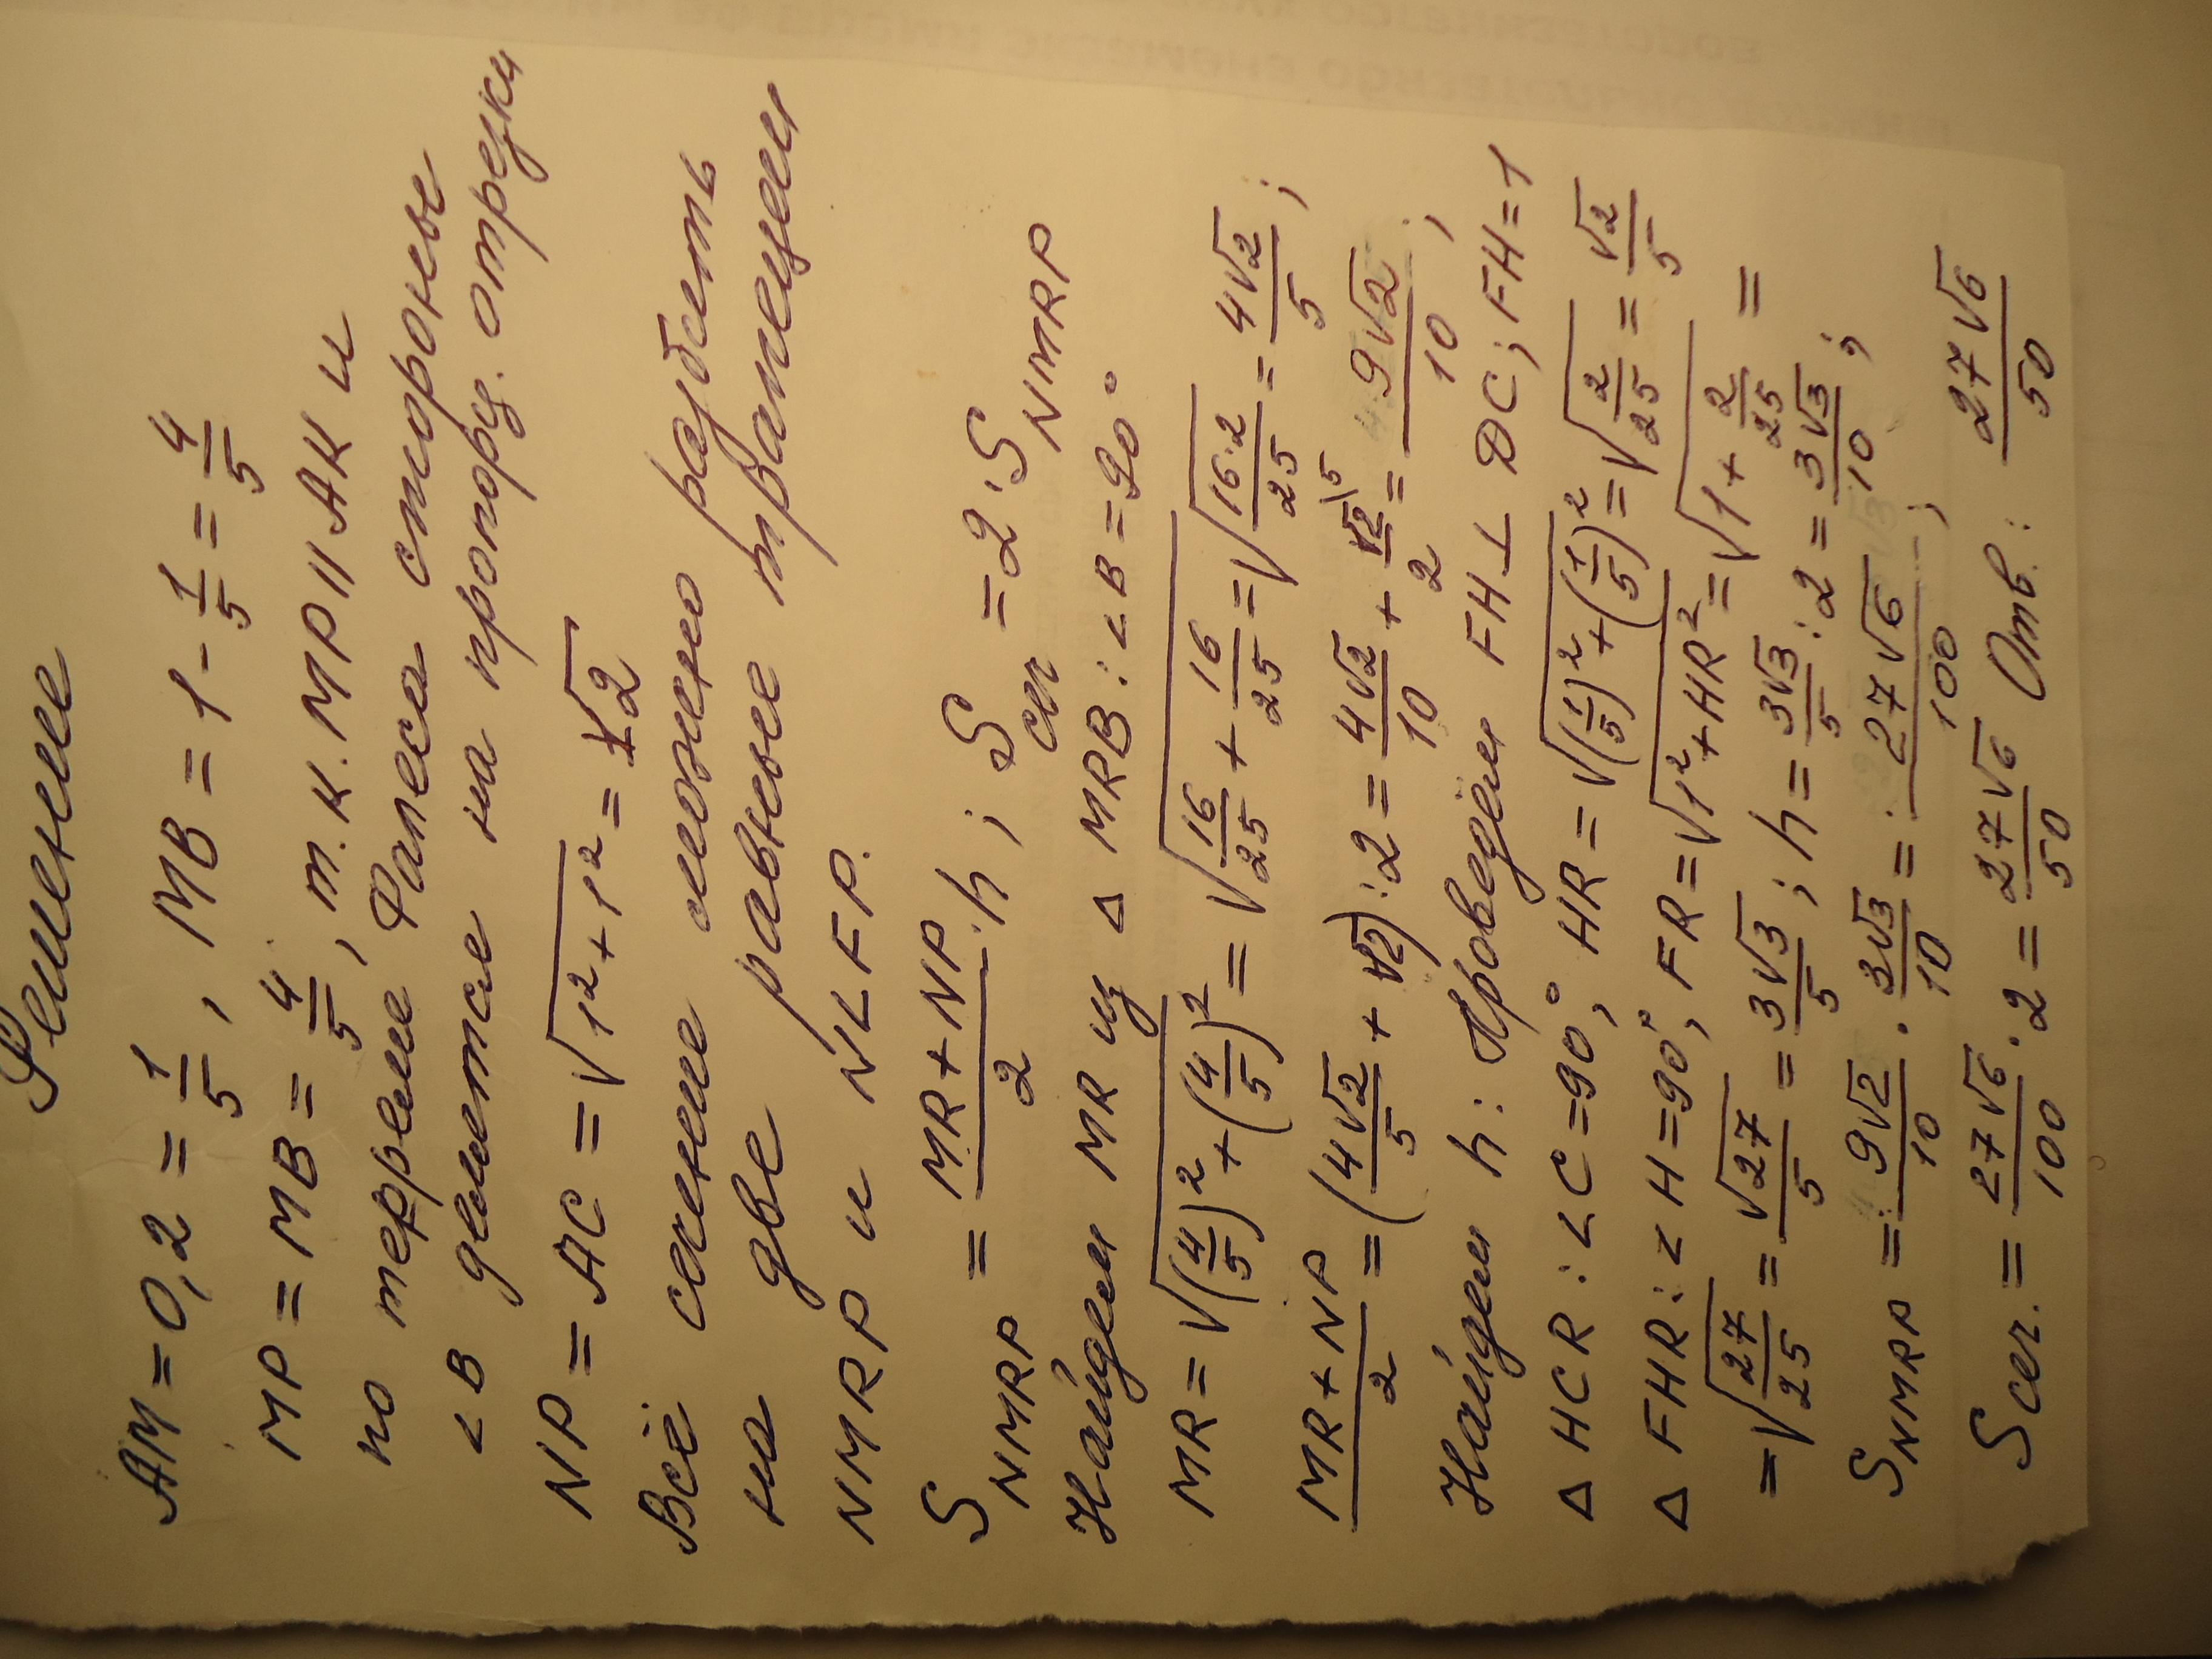 Решение
AM = 0,2 = 1/5, MB = 1 - 1/5 = 4/5
MP = MB = 4/5, т.к. MP || AK и
по теореме Фалеса стороны
∠B делятся на пропорц. отрезки
NP = AC = √(1² + 1²) = √2
Всё сечение можно разбить
на две равные трапеции
NMRP и NLFP.
S NMRP = (MR + NP)/2 · h ; S сеч = 2 · S NMRP
Найдем MR из Δ MRB : ∠B = 90°
MR = √((4/5)² + (4/5)²) = √(16/25 + 16/25) = √(16·2/25) = 4√2/5 ;
(MR + NP)/2 = (4√2/5 + √2) : 2 = 4√2/10 + √2/2 \5 = 9√2/10 ;
Найдем h : Проведём FH ⊥ DC ; FH = 1
Δ HCR : ∠C = 90°; HR = √((1/5)² + (1/5)²) = √(2/25) = √2/5
Δ FHR : ∠H = 90°; FR = √(1² + HR²) = √(1 + 2/25) =
= √(27/25) = √27/5 = 3√3/5 ; h = 3√3/5 : 2 = 3√3/10 ;
S NMRP = 9√2/10 · 3√3/10 = 27√6/100 ;
S сеч. = 27√6/100 · 2 = 27√6/50 Отв. : 27√6/50